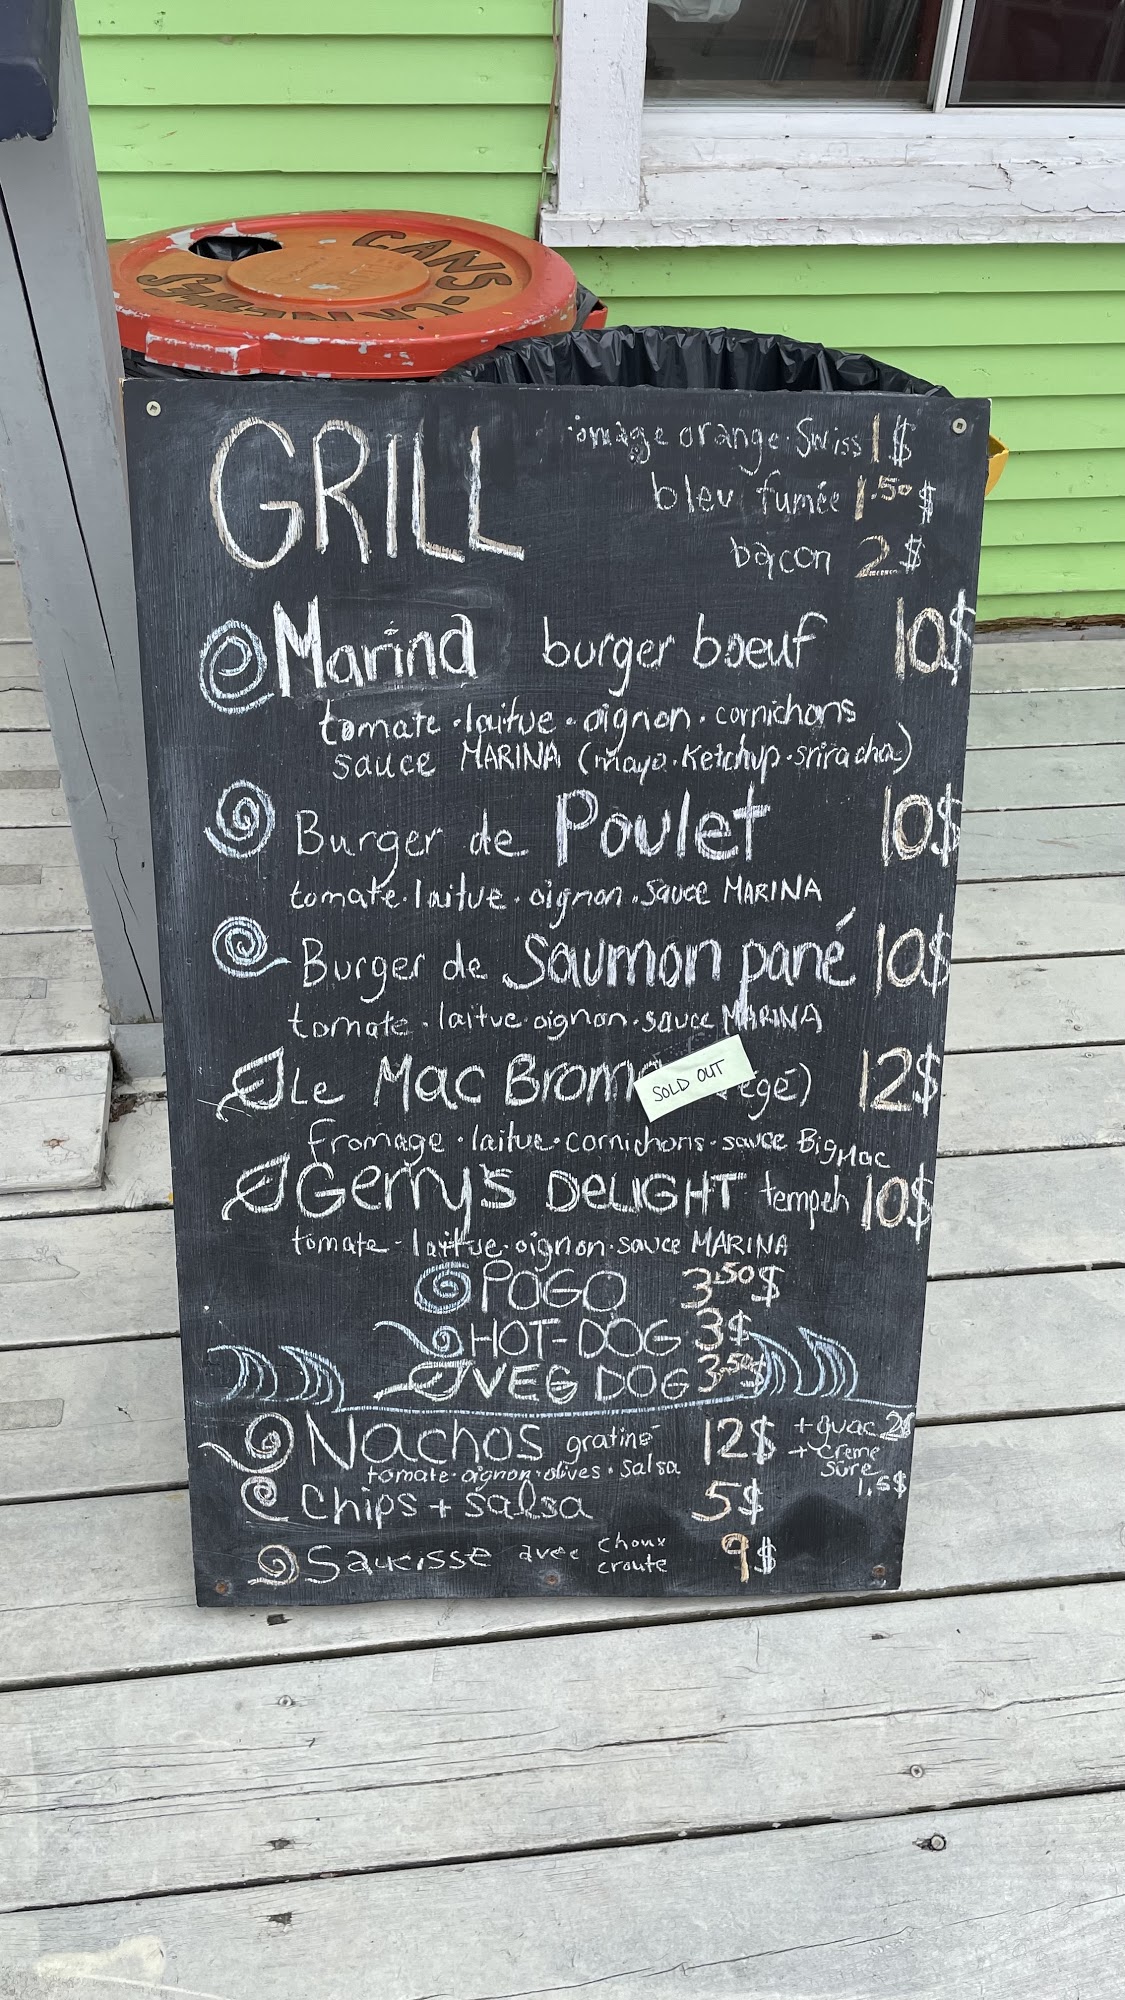 CANS.
CANETTES
GRILL
omage orange. Swiss 1$
bleu fumée 1.50$
bacon 2$
Marina burger boeuf 10$
tomate. laitue. oignon. cornichons
sauce MARINA (mayo. Ketchup. sriracha)
Burger de Poulet 10$
tomate. laitue. oignon. sauce MARINA
Burger de Saumon pané 10$
tomate. laitue. oignon. sauce MARINA
Le Mac Brom égé) 12$
SOLD OUT
fromage. laitue. cornichons. sauce BigMac
Gerry's DELIGHT tempeh 10$
tomate - laitue. oignon. sauce MARINA
POGO 3.50$
HOT-DOG 3$
VEG DOG 3.50$
Nachos gratiné 12$ + guac 2$
tomate. oignon. olives. salsa + creme sûre 1,5$
Chips + salsa 5$
Saucisse avec choux croute 9$